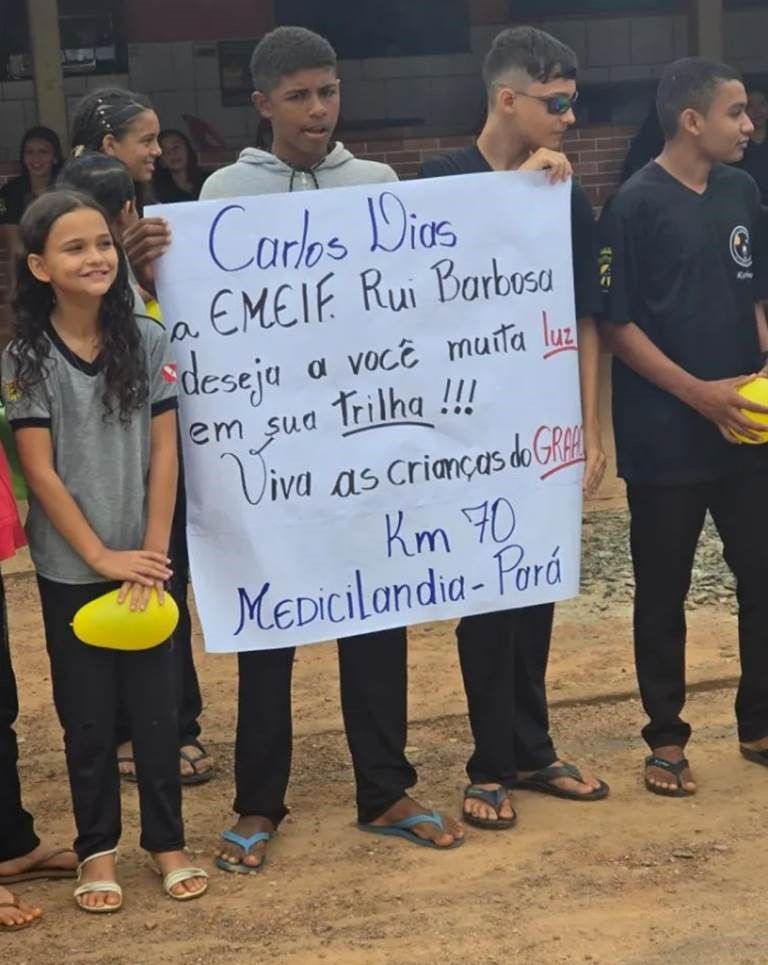 Carlos Dias
a EMEIF. Rui Barbosa
deseja a você muita luz
em sua trilha !!!
Viva as crianças do GRAAC
Km 70
Medicilandia - Pará